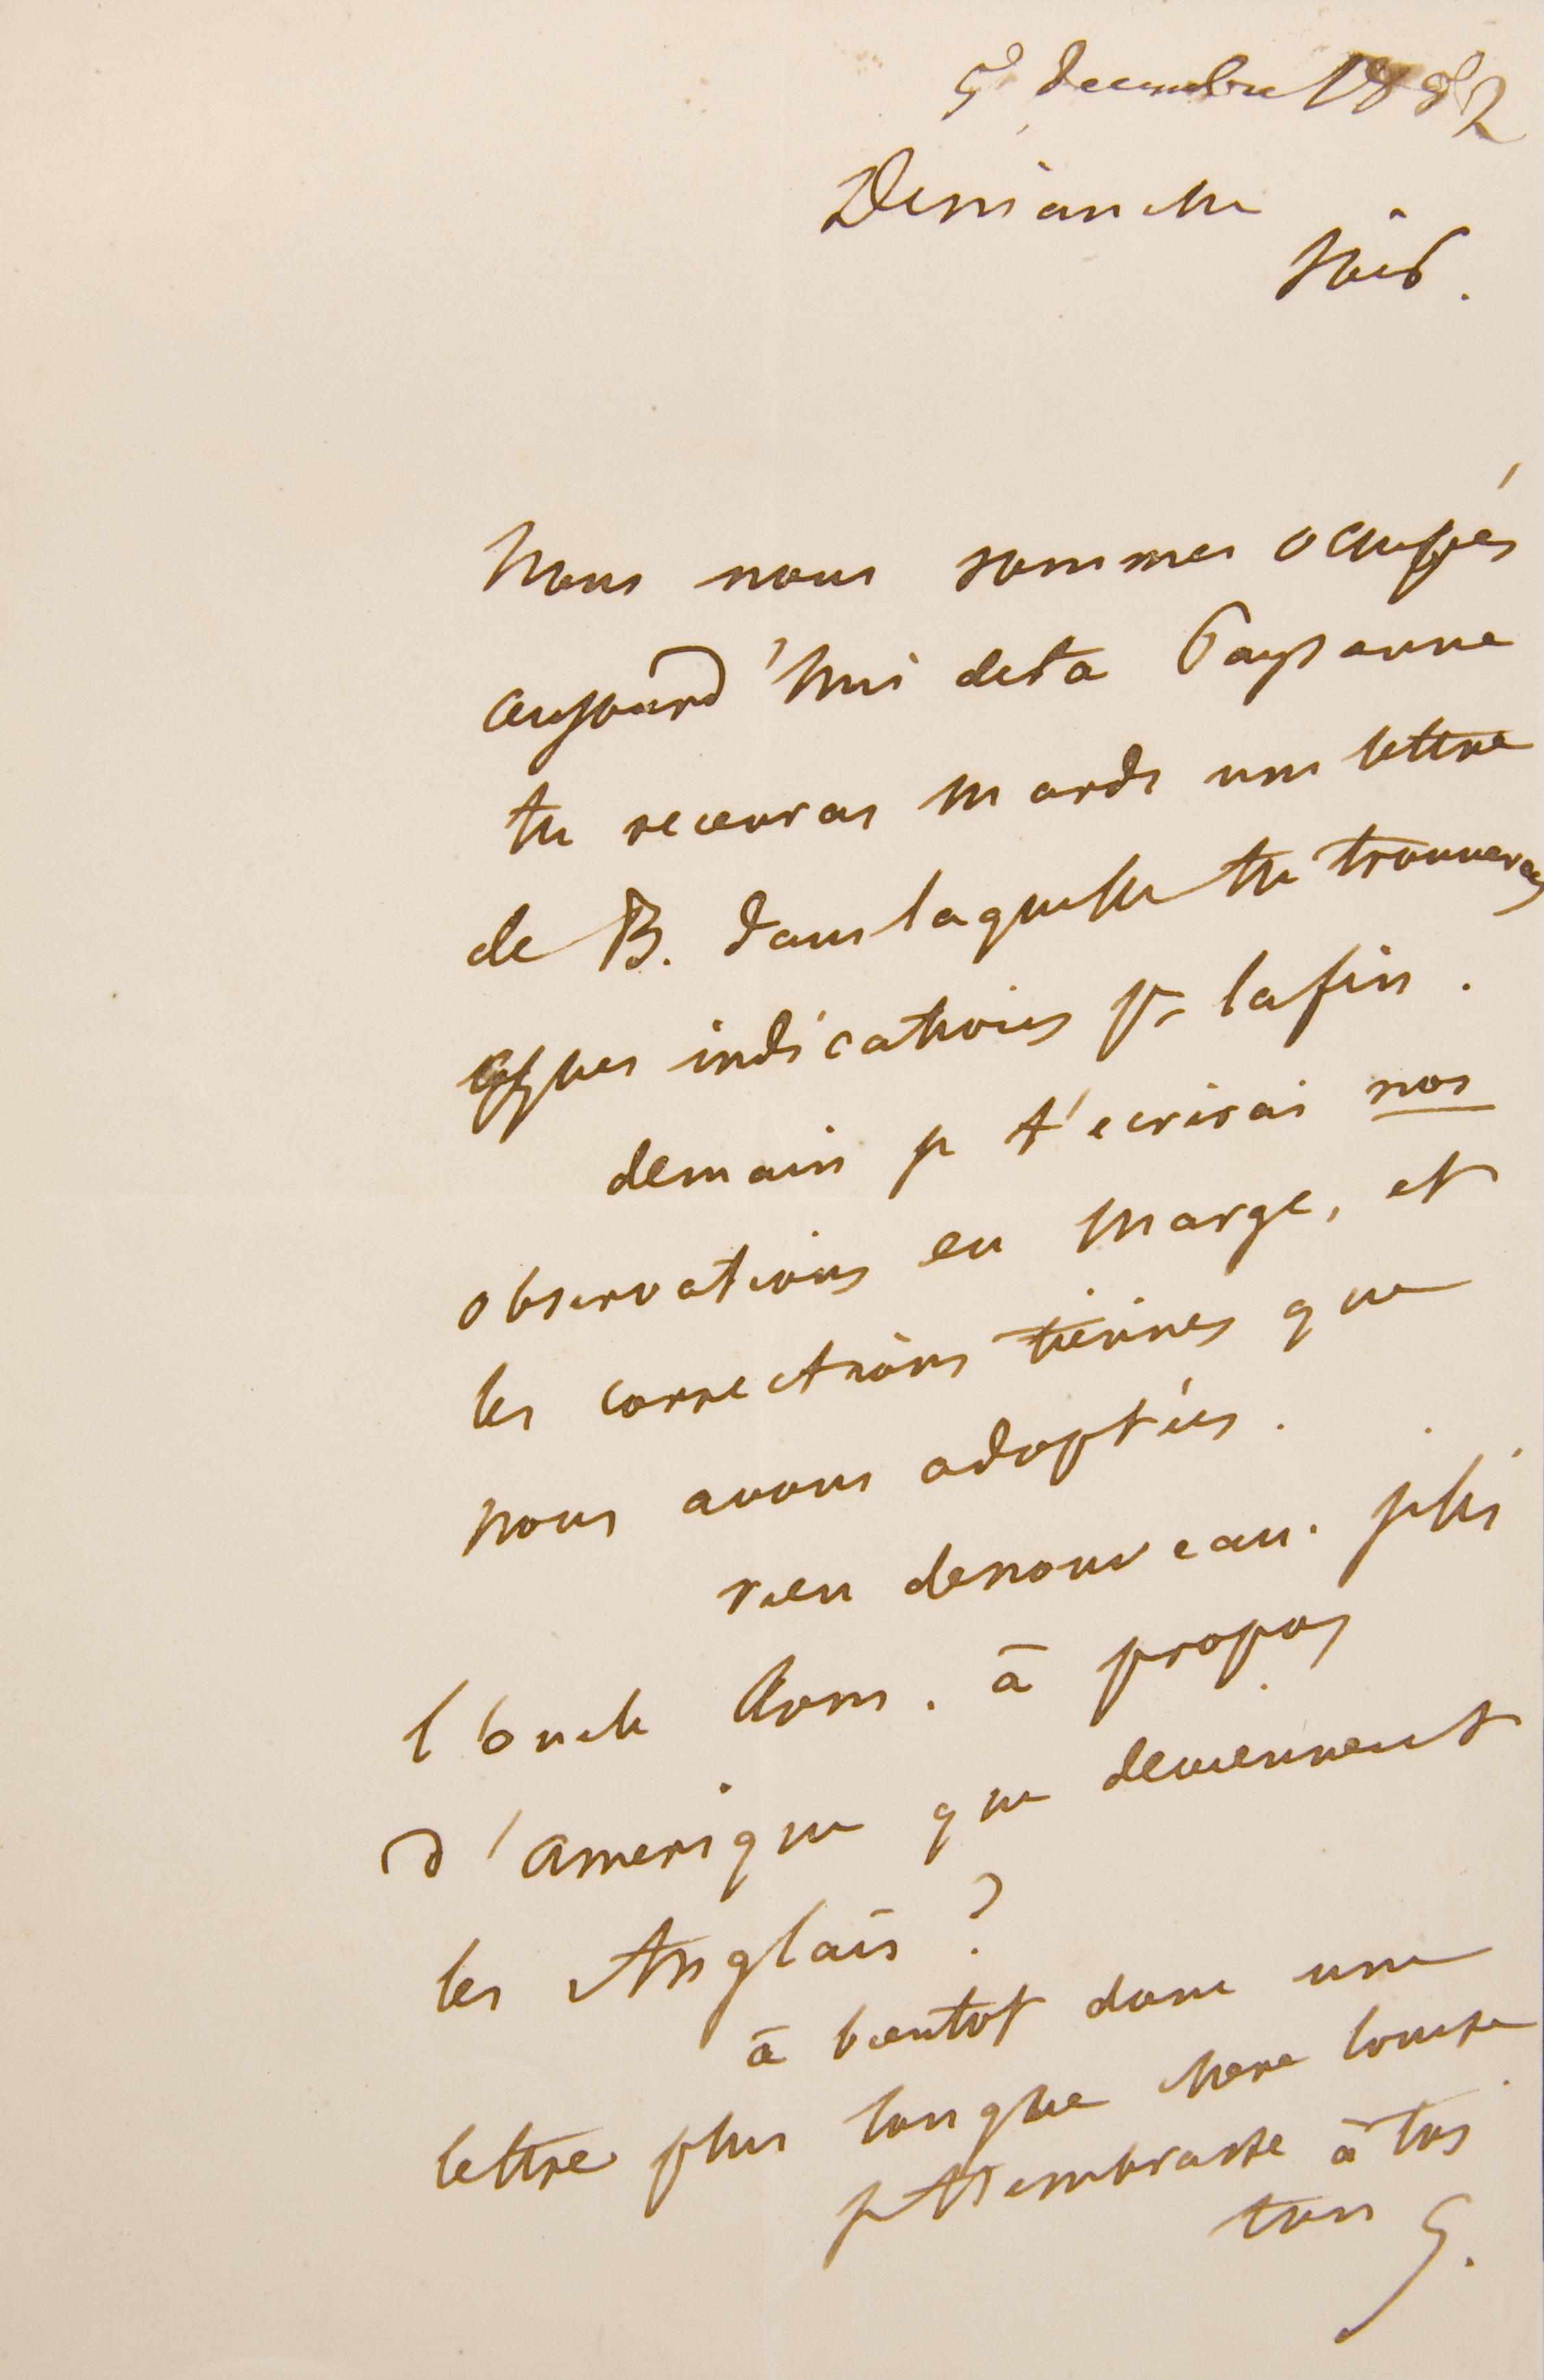 5 decembre 1852
Dimanche
soir.
Nous nous sommes occupés
aujourd'hui de ta Paysanne
tu recevras mardi une lettre
de B. dans laquelle tu trouveras
qques indications pr la fin.
demain je t'ecrirai nos
observations en marge, et
les corrections tiennes que
nous avons adoptées.
rien de nouveau. j'ai lu
l'oncle Tom. à propos
d'amerique que deviennent
les Anglais ?
à bientot donc une
lettre plus longue chere Louise
je t'embrasse à toi
ton G.